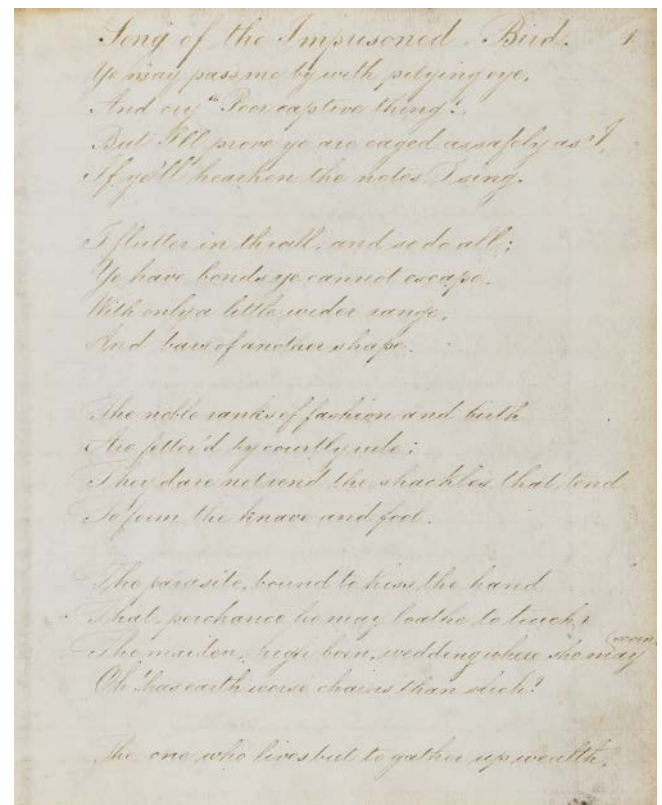 Song of the Imprisoned Bird. 1
Ye may pass me by with pitying eye,
And cry "Poor captive thing!"
But I'll prove ye are caged as safely as I,
If ye'll hearken the notes I sing.
I flutter in thrall, and so do all;
Ye have bonds ye cannot escape.
With only a little wider range,
And bars of another shape.
The noble ranks of fashion and birth
Are fetter'd by courtly rule;
They dare not rend the shackles that tend
To form the knave and fool.
The parasite, bound to kiss the hand
That, perchance he may loathe to touch;
The maiden, high born, wedding where she may scorn,
Oh! has earth worse chains than such?
The one who lives but to gather up wealth,